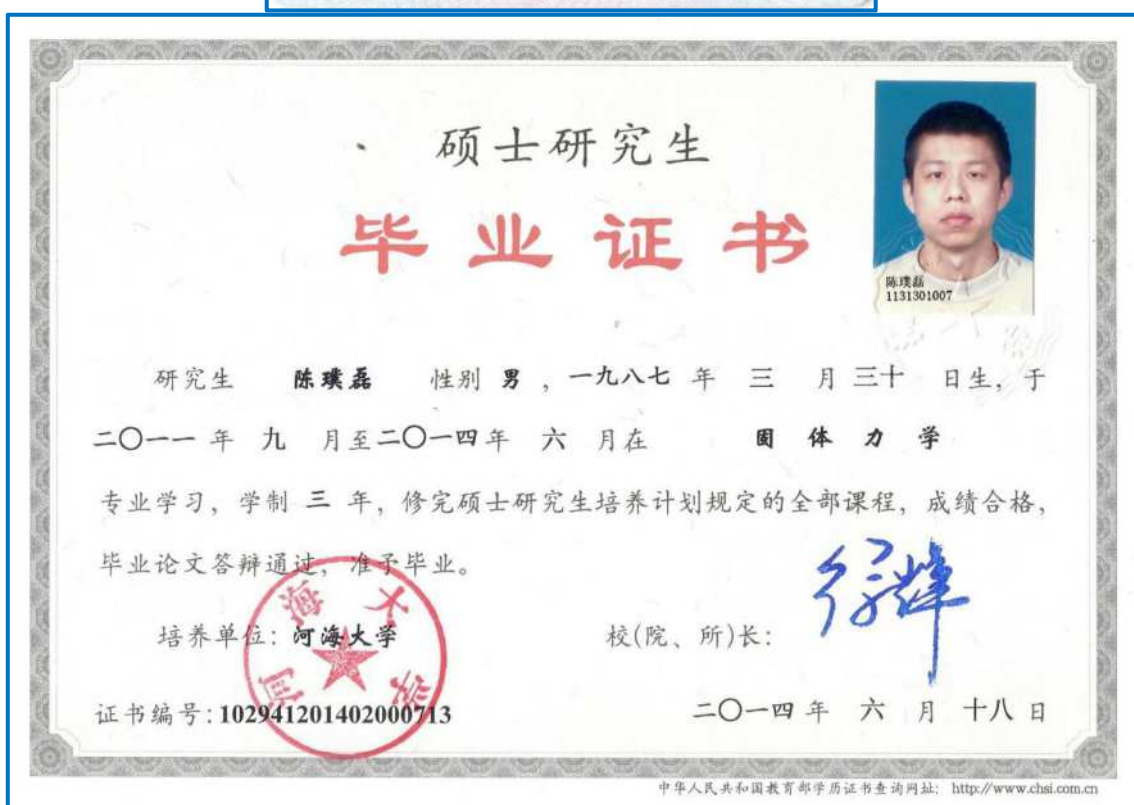 硕士研究生
毕业证书
陈璞磊
1131301007
研究生 陈璞磊 性别 男 , 一九八七 年 三 月 三十 日生, 于
二〇一一 年 九 月至二〇一四年 六 月在 固体力学
专业学习, 学制 三 年, 修完硕士研究生培养计划规定的全部课程, 成绩合格,
毕业论文答辩通过, 准予毕业。
河海大学
培养单位: 河海大学 校(院、所)长: 徐辉
证书编号: 102941201402000713 二〇一四 年 六 月 十八 日
中华人民共和国教育部学历证书查询网址: http://www.chsi.com.cn